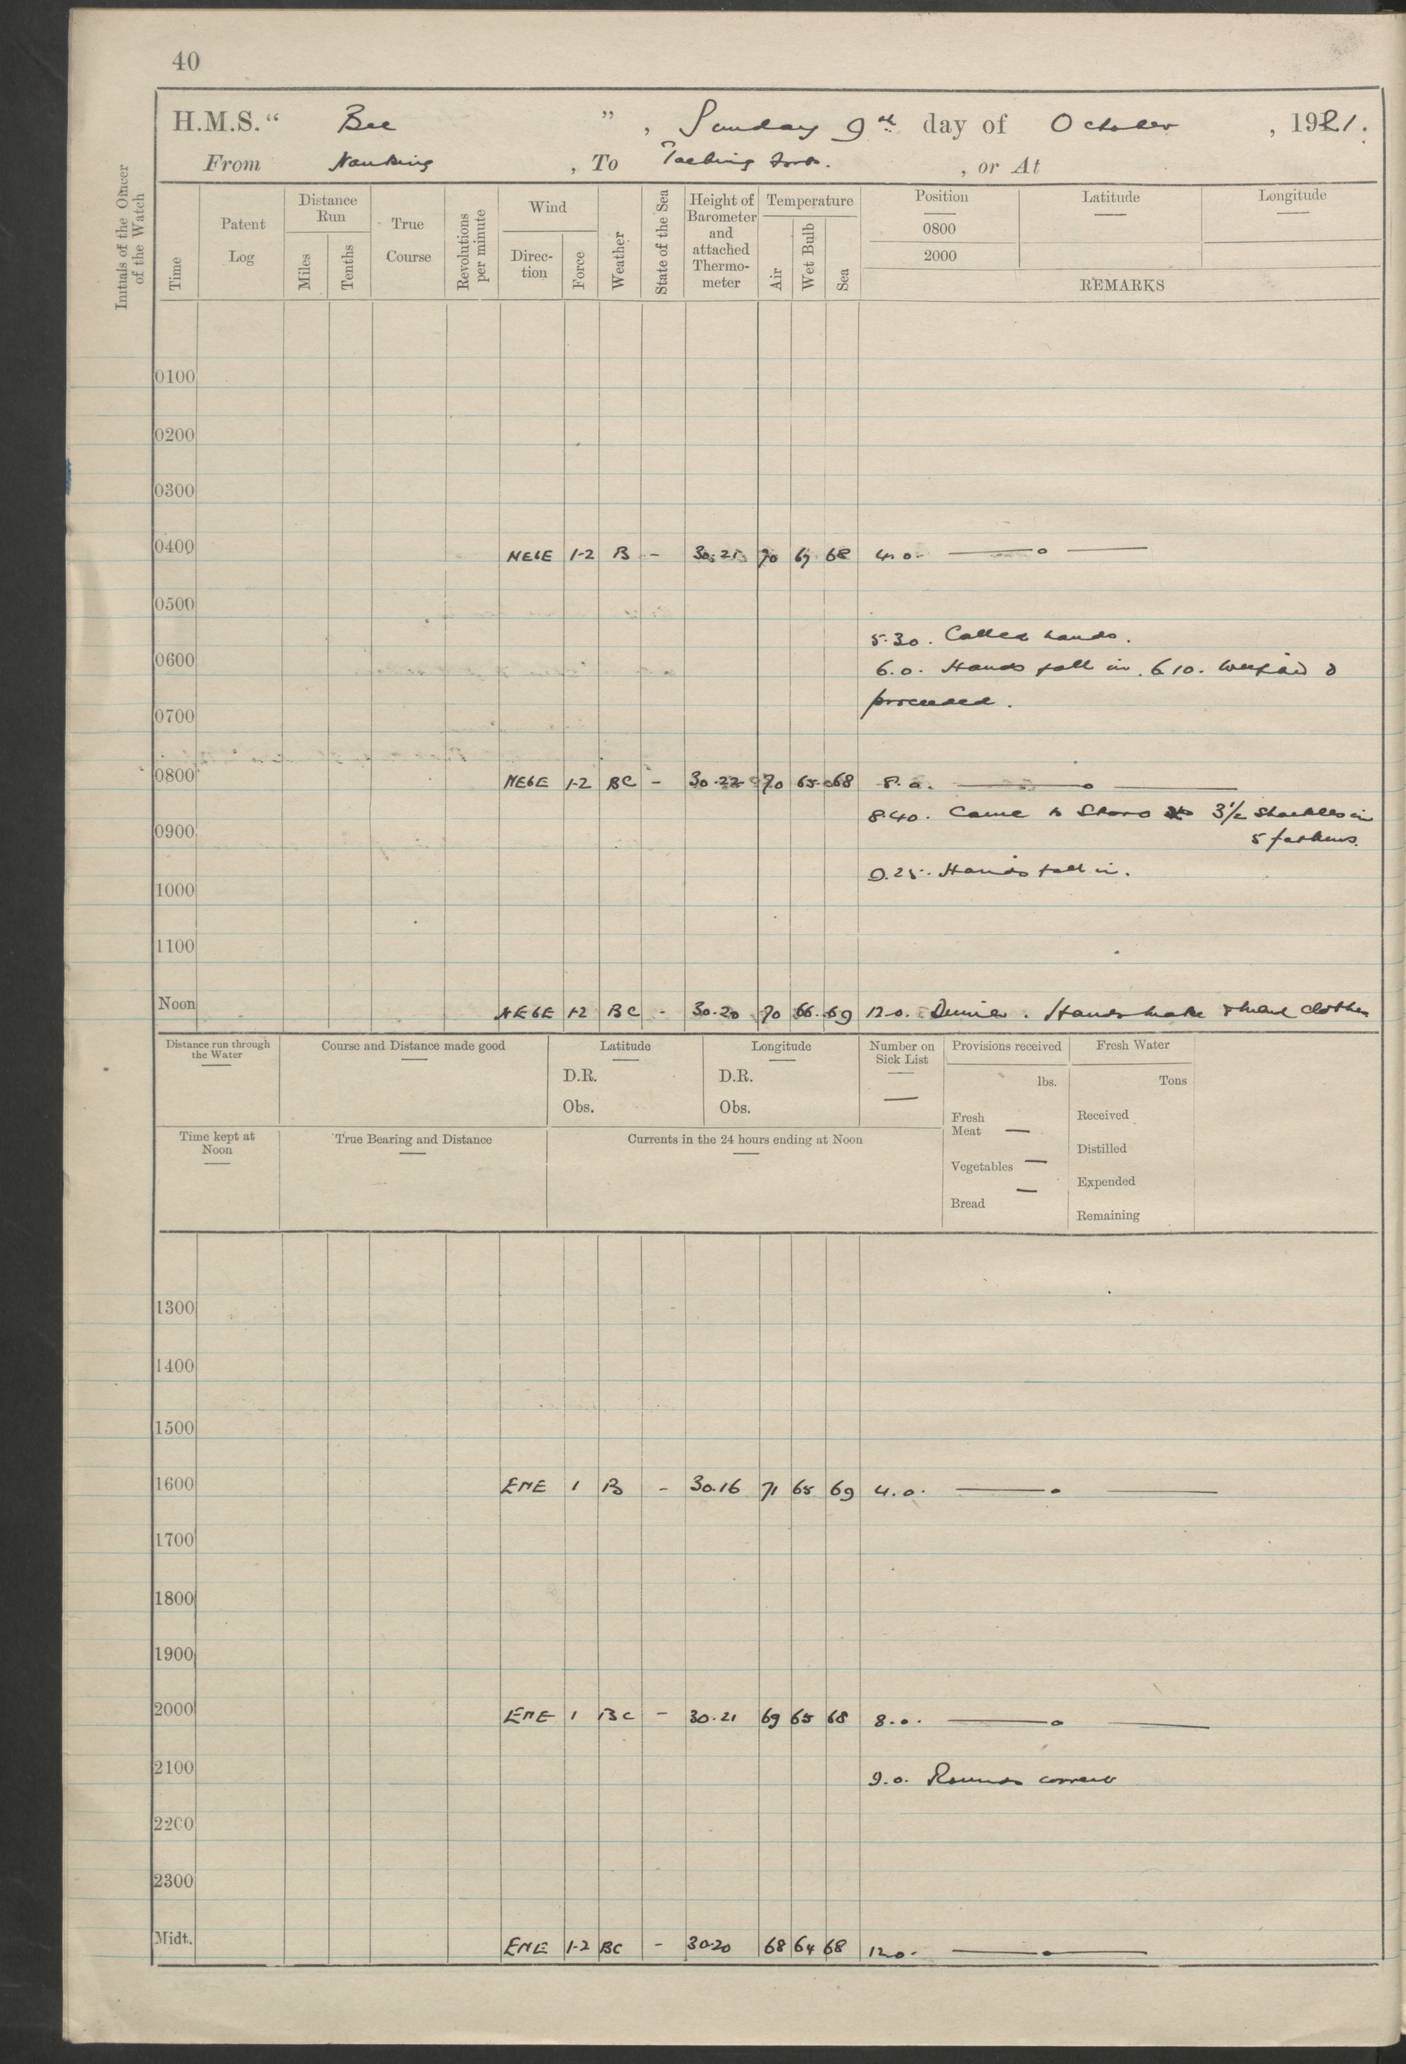 40
H.M.S. " Bee ", Sunday 9th day of October, 1921.
From Nanking, To Taeping Fort., or At
Initials of the Officer of the Watch
Time
Patent Log
Distance Run
Miles
Tenths
True Course
Revolutions per minute
Wind
Direction
Force
Weather
State of the Sea
Height of Barometer and attached Thermometer
Temperature
Air
Wet Bulb
Sea
Position
0800
2000
Latitude
Longitude
REMARKS
0100
0200
0300
0400 NEbE 1-2 B - 30.21 70 67 68 4.0. —o—
0500
5.30. Called hands.
0600
6.0. Hands fall in. 6.10. Weighed &
proceeded.
0700
0800 NEbE 1-2 BC - 30.22 70 65 68 8.0. —o—
8.40. Came to Starb 3½ shackles in
5 fathoms.
0900
9.25. Hands fall in.
1000
1100
Noon NEbE 1-2 BC - 30.20 70 66 69 12.0. Dinner. Hands make & mend clothes
Distance run through the Water
Course and Distance made good
Latitude
D.R.
Obs.
Longitude
D.R.
Obs.
Number on Sick List
—
Provisions received
lbs.
Fresh Meat —
Vegetables —
Bread —
Fresh Water
Tons
Received
Distilled
Expended
Remaining
Time kept at Noon
True Bearing and Distance
Currents in the 24 hours ending at Noon
1300
1400
1500
1600 ENE 1 B - 30.16 71 65 69 4.0. —o—
1700
1800
1900
2000 ENE 1 BC - 30.21 69 65 68 8.0. —o—
2100
9.0. Rounds correct
2200
2300
Midt. ENE 1-2 BC - 30.20 68 64 68 12.0. —o—